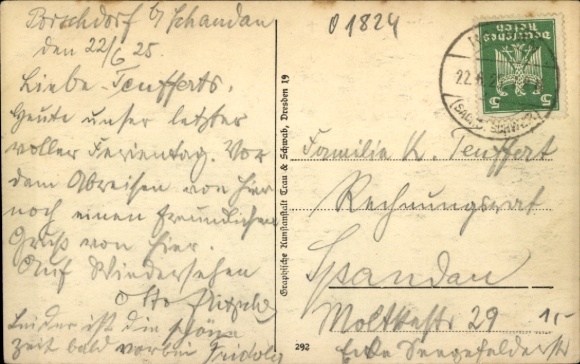 Porschdorf b/ Schandau
den 22/6 25.
Liebe Teufferts,
Heute unser letzter
voller Ferientag. Vor
dem Abreisen von hier
noch einen freundlichen
Gruß von hier.
Auf Wiedersehen
Otto
Leider ist die schöne
Zeit bald vorbei Fridolg
Graphische Kunstanstalt Trau & Schwab, Dresden 19
292
0 1824
Deutsches Reich
5 5
22.6.2
(SÄCHS. SCHWEIZ)
Familie K. Teuffert
Rechnungsrat
Spandau
Moltkestr 29
Ecke Seegefelderstr
15-